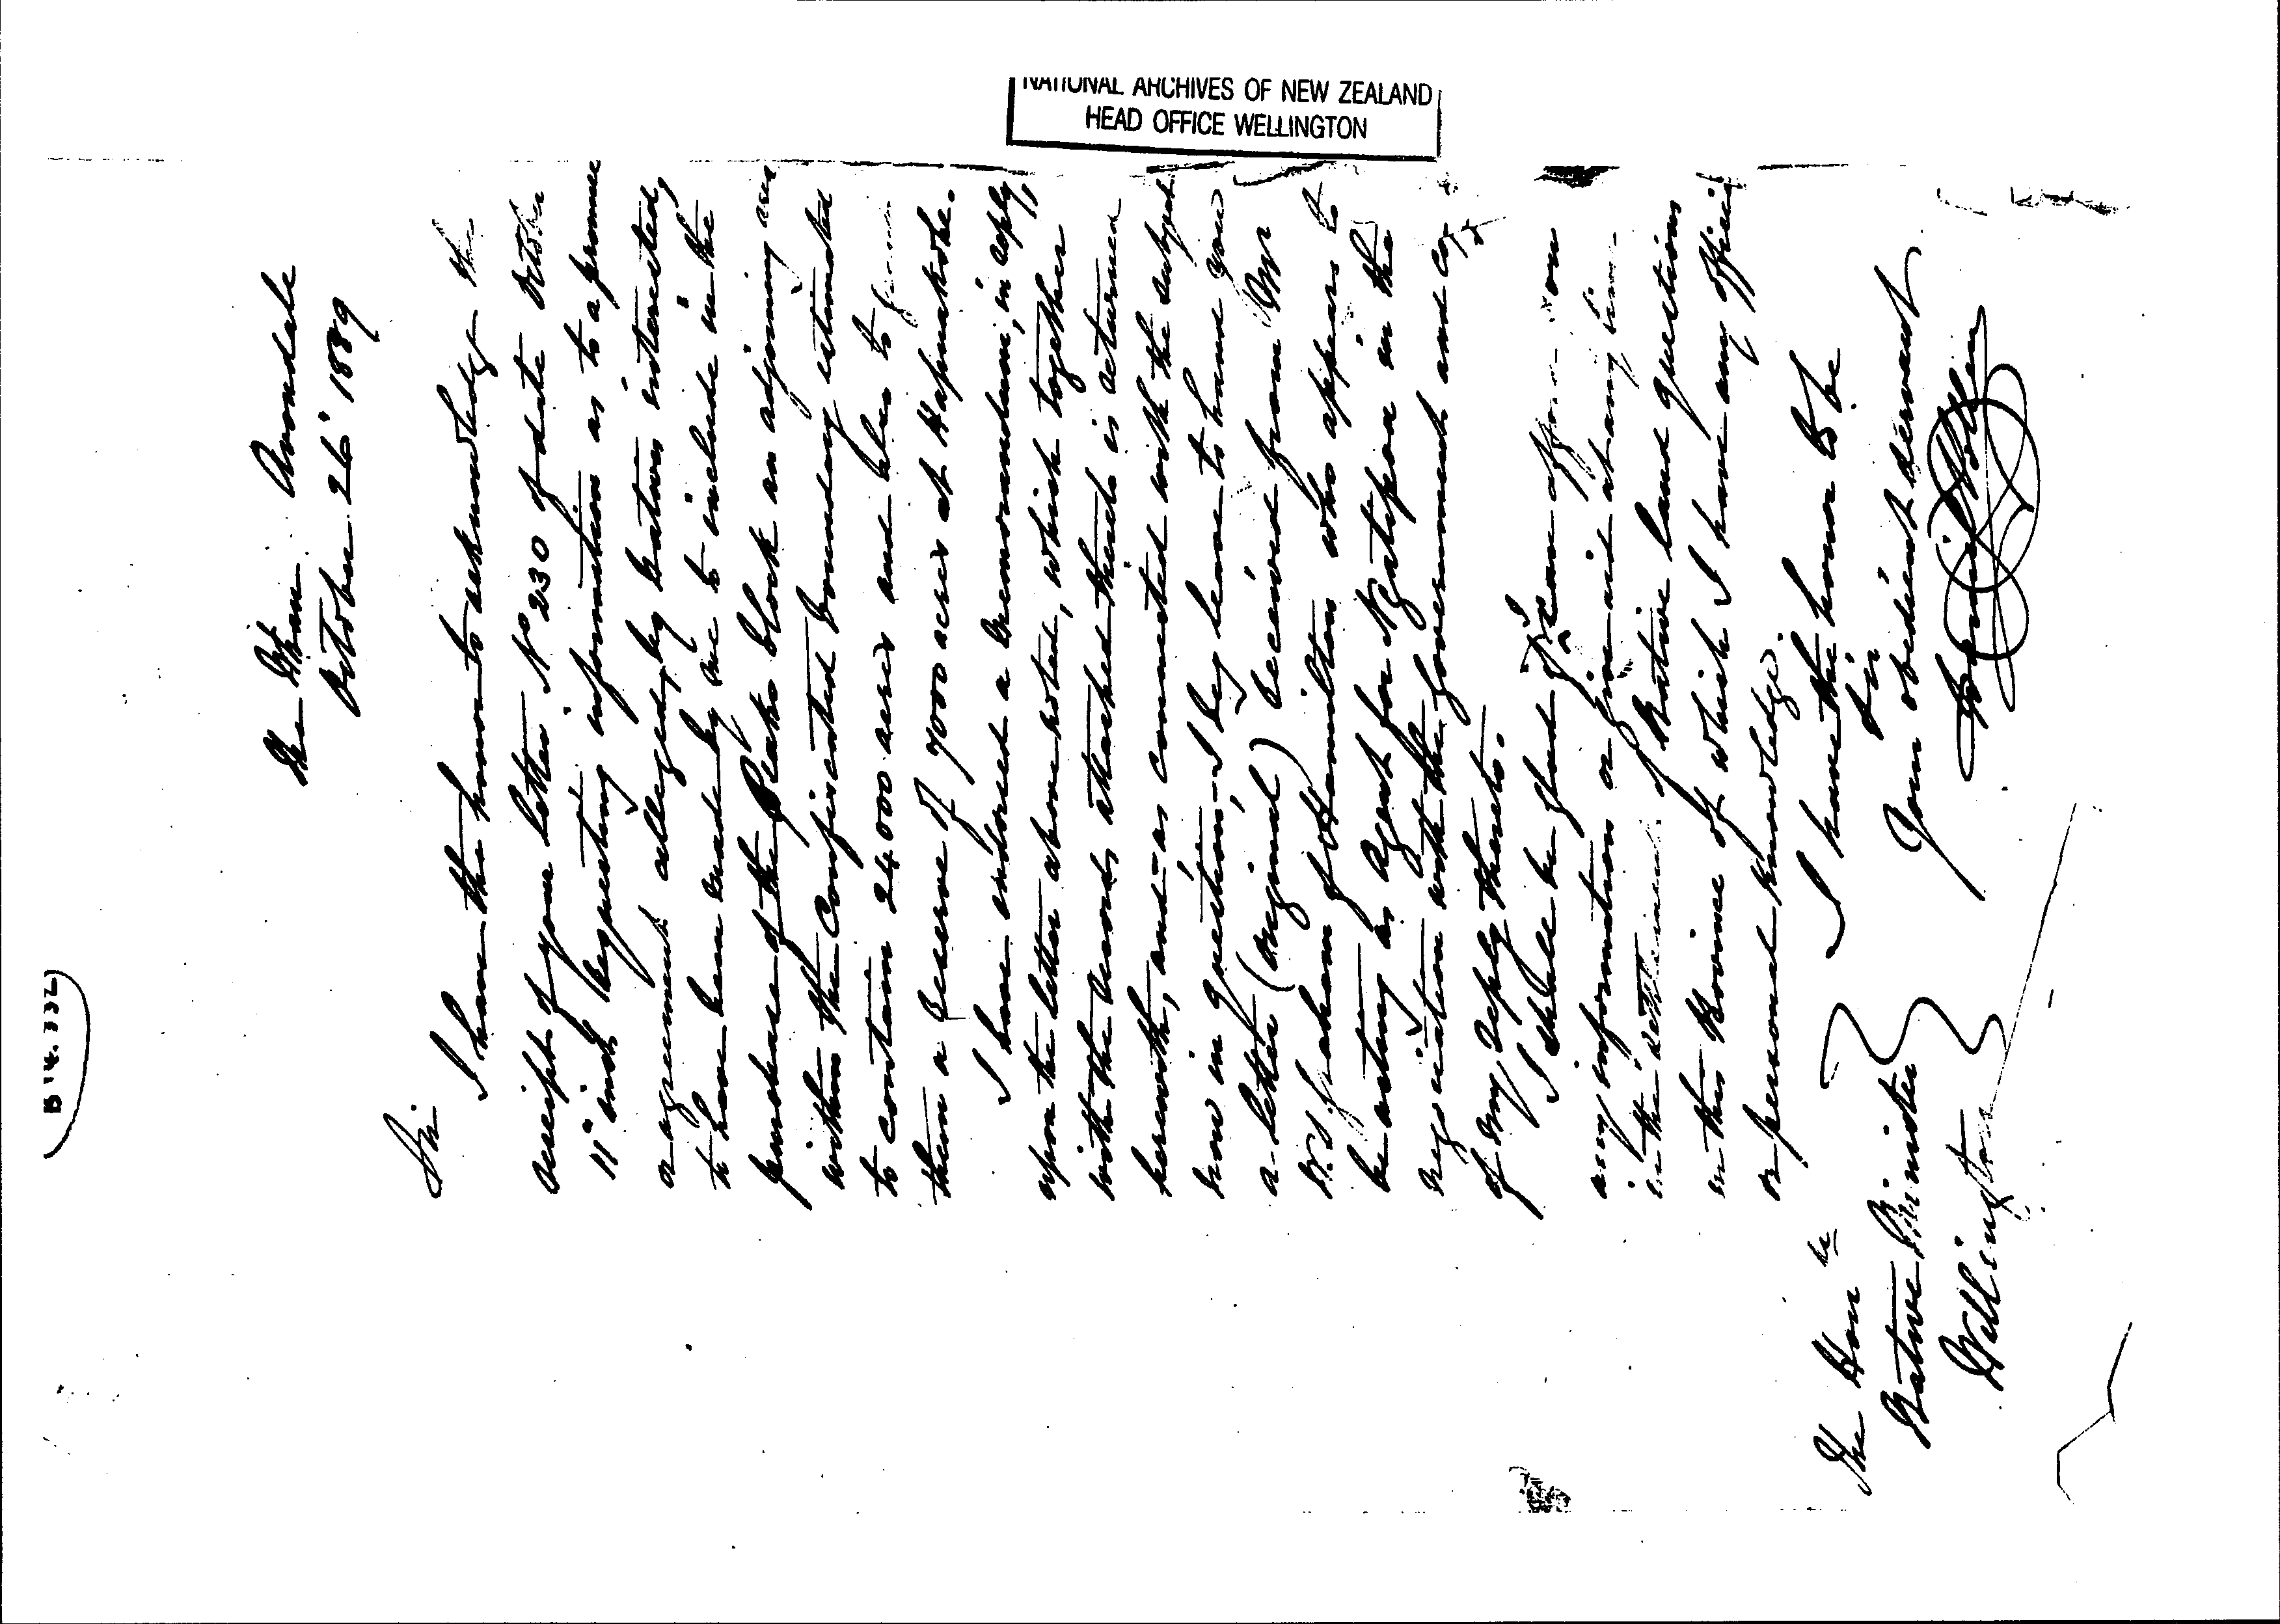 NATIONAL ARCHIVES OF NEW ZEALAND
HEAD OFFICE WELLINGTON
B 14.332
The Whau Avondale
October 26 1889
Sir
I have the honor to acknowledge the
receipt of your letter No 230 of date October
11th inst requesting information as to a promise
or agreement alledged, by Natives interested,
to have been made by me to include in the
purchase of the Piako block an adjoining area
within the Confiscated boundary estimated
to contain 24000 acres and also to
them a reserve of 7000 acres at Hapuakohe.
I have endorsed a memorandum, in reply,
upon the letter above noted, which together
with the records attached thereto is returned
herewith, and as connected with the subject
now in question, I beg leave to hand you
a letter (original) received from Mr
W. Graham of Hamilton who appears to
be acting as agent for Ngatipaoa in the
negociation with the government and copy
of my reply thereto.
I shall be glad if I can
any information or give aid at any time
in the settlement of Native land questions
in this Province of which I have any official
or personal knowledge.
I have the honor to be
Sir
Your obedient servant
The Honble
Native Minister
Wellington